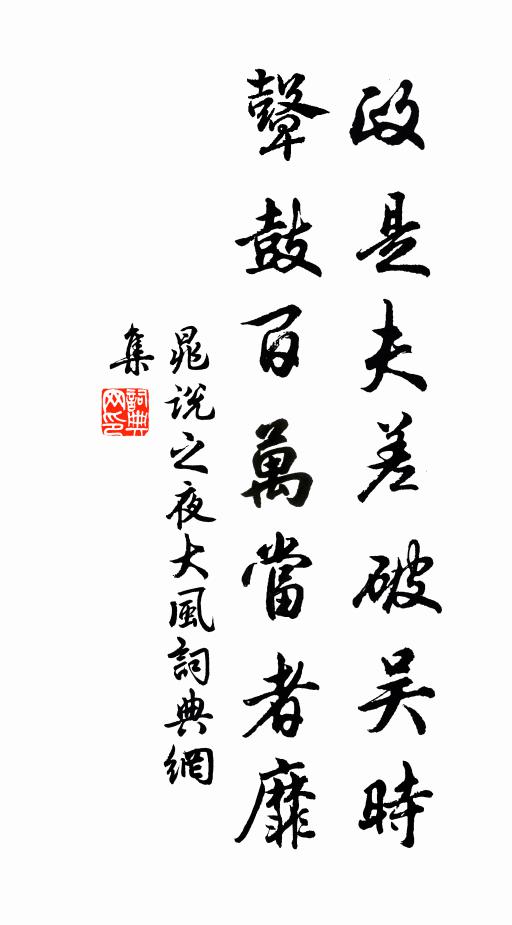 政是夫差破吴時
鼙鼓百萬當者靡
晁説之夜大風詞典網
集
詞典
网印